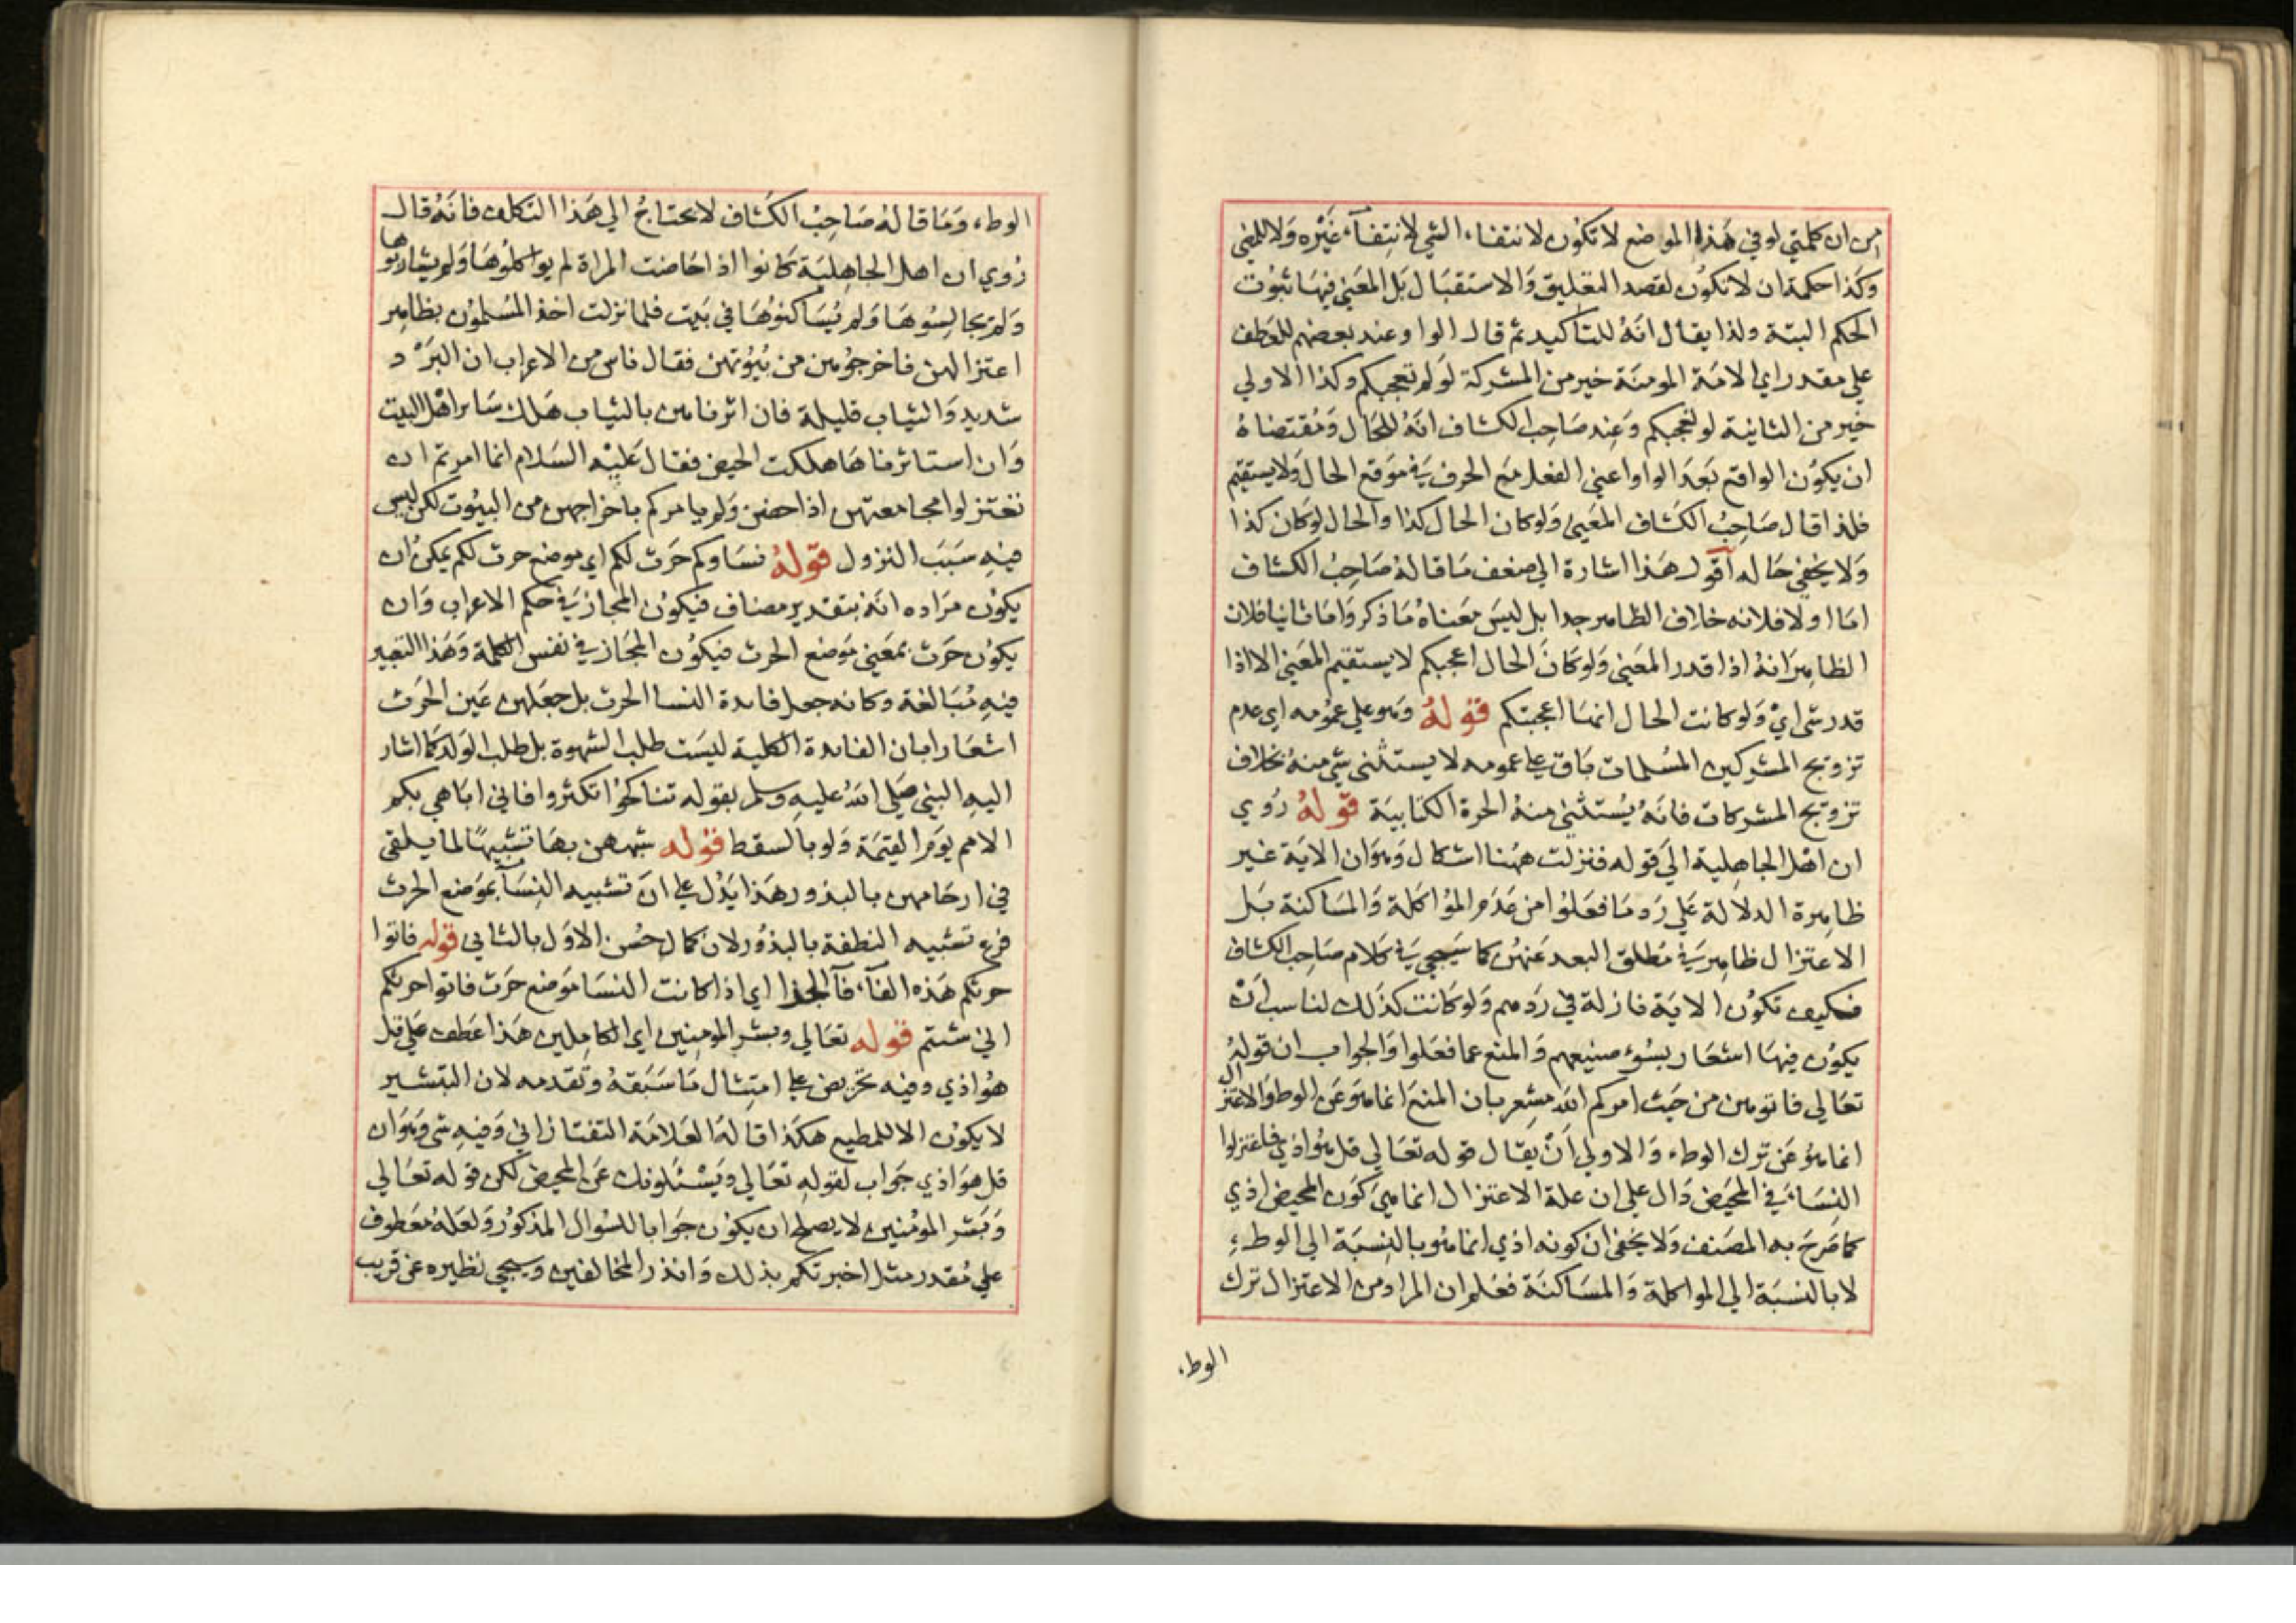 من ان كلمتي لو في هذا المواضع لا تكون لانتفاء الشي لانتفاء غيره ولا للمضي
وكذا حكمة ان لا تكون لقصد التعليق والاستقبال بل المعني فيها ثبوت
الحكم البتة ولذا يقال انه للتاكيد ثم قال الواو عند بعضهم للعطف
علي مقدر اي الامة المومنة خير من المشركة لو لم تعجبكم وكذا الاولي
خير من الثانية لو تعجبكم وعند صاحب الكشاف انه للحال ومقتضاه
ان يكون الواقع بعد الواو اعني الفعل مع الحرف في موقع الحال ولا يستقيم
فلذا قال صاحب الكشاف المعني ولو كان الحال كذا والحال لو كان كذا
ولا يخفي حاله اقول هذا اشارة الي ضعف ما قاله صاحب الكشاف
اما اولا فلانه خلاف الظاهر جدا بل ليس معناه ما ذكر واما ثانيا فلان
الظاهر انه اذا قدر المعني ولو كان الحال اعجبكم لا يستقيم المعني الا اذا
قدر شي اي ولو كانت الحال انها اعجبتكم قوله وهو علي عمومه اي عدم
تزويج المشركين المسلمات باق علي عمومه لا يستثني شي منه بخلاف
تزويج المشركات فانه يستثني منه الحرة الكتابية قوله روي
ان اهل الجاهلية الي قوله فنزلت ههنا اشكال وهو ان الاية غير
ظاهرة الدلالة علي رد ما فعلوا من عدم المؤاكلة والمساكنة بل
الاعتزال ظاهر في مطلق البعد عنهن كما سيجي في كلام صاحب الكشاف
فكيف تكون الاية نازلة في ردهم ولو كانت كذلك لناسب ان
يكون فيها اشعار بسوء صنيعهم والمنع عما فعلوا والجواب ان قوله
تعالي فاتوهن من حيث امركم الله مشعر بان المنع انما هو عن الوطو الاعتزال
انما هو عن ترك الوطء والاولي ان يقال قوله تعالي قل هو اذي فاعتزلوا
النساء في المحيض دال علي ان علة الاعتزال انما هي كون المحيض اذي
كما صرح به المصنف ولا يخفي ان كونه اذي انما هو بالنسبة الي الوطء
لا بالنسبة الي المواكلة والمساكنة فعلم ان المراد من الاعتزال ترك
الوطء
الوطء وما قاله صاحب الكشاف لا يحتاج الي هذا التكلف فانه قال
روي ان اهل الجاهلية كانوا اذا حاضت المراة لم يواكلوها ولم يشاربوها
ولم يجالسوها ولم يساكنوها في بيت فلما نزلت اخذ المسلمون بظاهر
اعتزالهن فاخرجوهن من بيوتهن فقال ناس من الاعراب ان البرد
شديد والثياب قليلة فان اثرناهن بالثياب هلك سائر اهل البيت
وان استاثرنا ها هلكت الحيض فقال عليه السلام انما امرتم ان
تعتزلوا مجامعتهن اذا حضن ولم يامركم باخراجهن من البيوت لكن ليس
فيه سبب النزول قوله نساوكم حرث لكم اي موضع حرث لكم يمكن ان
يكون مراده انه بتقدير مضاف فيكون المجاز في حكم الاعراب وان
يكون حرث بمعني موضع الحرث فيكون المجاز في نفس الكلمة وهذا التعبير
فيه مبالغة وكانه جعل فايدة النسا الحرث بل جعلهن عين الحرث
اشعارا بان الفايدة الكلية ليست طلب الشهوة بل طلب الولد كما اشار
اليه النبي صلي الله عليه وسلم بقوله تناكحوا تكثروا فاني اباهي بكم
الامم يوم القيمة ولو بالسقط قوله شبههن بها تشبيها لما يلقي
في ارحامهن بالبذور هذا يدل علي ان تشبيه النساء بموضع الحرث
فرع تشبيه النطفة بالبذور لان كمال حسن الاول بالثاني قوله فاتوا
حرثكم هذه الفاء فاء الجزا اي اذا كانت النسا موضع حرث فاتوا حرثكم
اني شئتم قوله تعالي وبشر المومنين اي الكاملين هذا عطف علي قل
هو اذي وفيه تحريض علي امتثال ما سبقه وتقدمه لان التبشير
لا يكون الا للمطيع هكذا قاله العلامة التفتازاني وفيه شي وهو ان
قل هو اذي جواب لقوله تعالي ويسئلونك عن المحيض لكن قوله تعالي
وبشر المومنين لا يصلح ان يكون جوابا للسوال المذكور ولعله معطوف
علي مقدر مثل اخبرتكم بذلك وانذر المخالفين وسيجي نظيره عن قريب